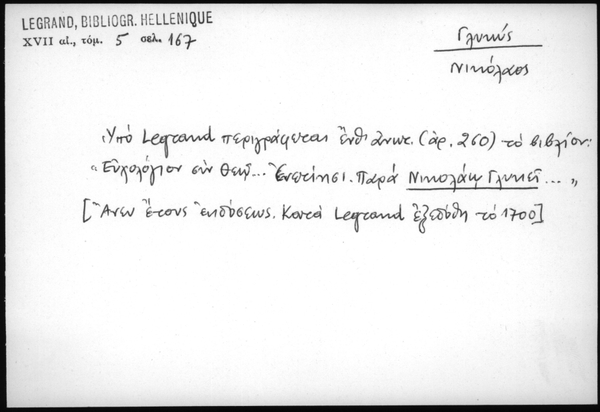 LEGRAND, BIBLIOGR. HELLENIQUE
XVII αἰ., τόμ. 5 σελ. 167
Γλυκύς
Νικόλαος
Ὑπό Legrand περιγράφεται ἔνθ' ἀνωτ. (ἀρ. 260) τό βιβλίον:
"Εὐχολόγιον σύν Θεῷ... Ἐνετίησι. Παρά Νικολάῳ Γλυκεῖ... "
[Ἄνευ ἔτους ἐκδόσεως. Κατά Legrand ἐξεδόθη τό 1700]